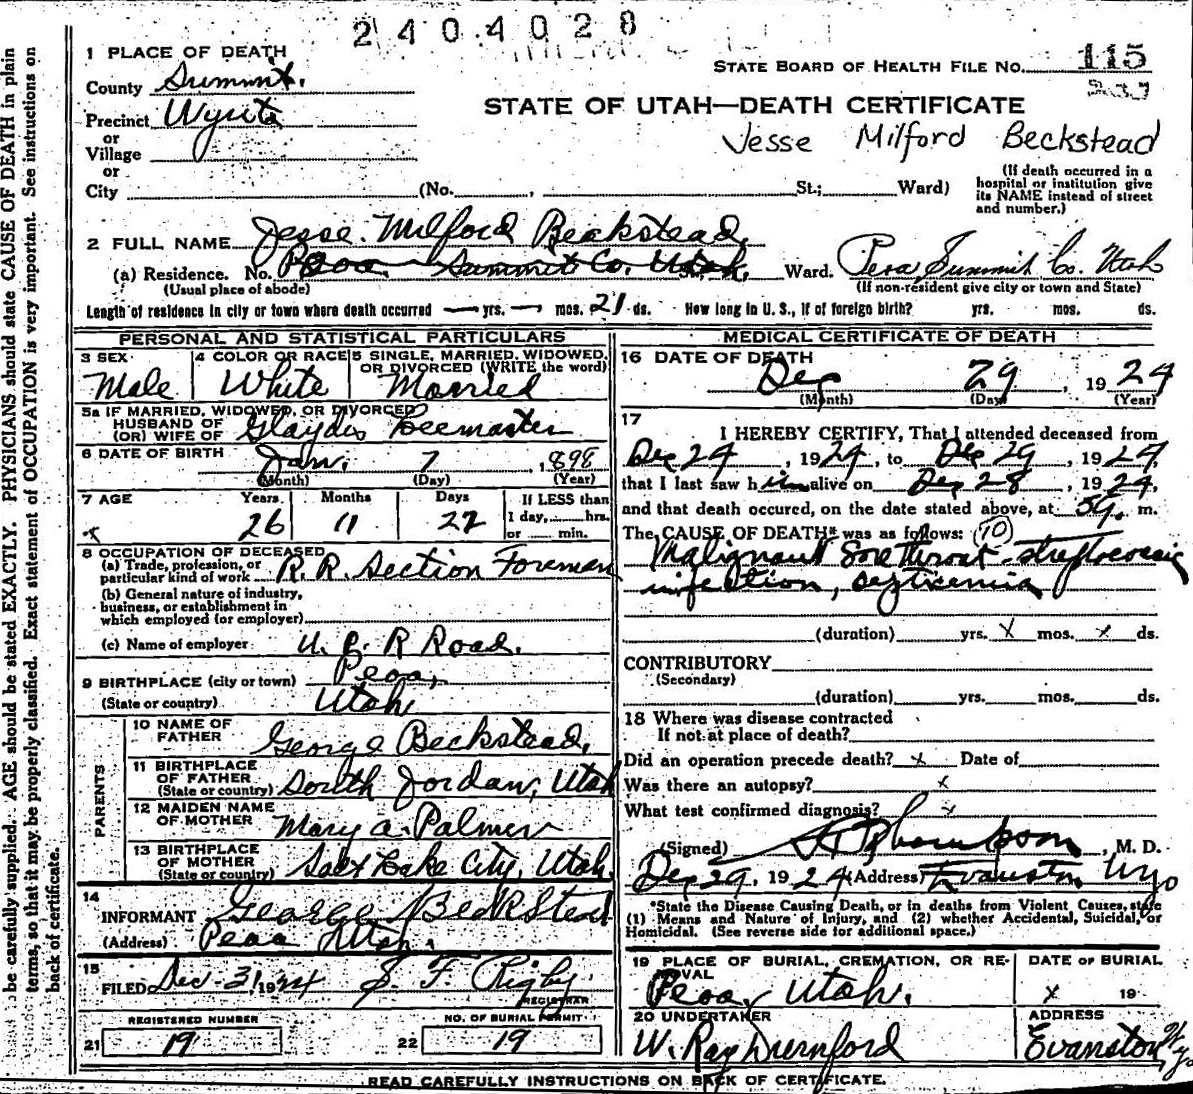 2404028
1 PLACE OF DEATH
County Summit.
STATE BOARD OF HEALTH FILE No. 115
Precinct Wyuta
STATE OF UTAH—DEATH CERTIFICATE
or
Village
Jesse Milford Beckstead
or
City (No. , St.; Ward)
(If death occurred in a hospital or institution give its NAME instead of street and number.)
2 FULL NAME Jesse. Milford Beckstead
(a) Residence. No. Peoa. Summit Co. Utah. Ward. Peoa Summit Co. Utah
(Usual place of abode) (If non-resident give city or town and State)
Length of residence in city or town where death occurred — yrs. — mos. 21 ds. How long in U. S., if of foreign birth? yrs. mos. ds.
PERSONAL AND STATISTICAL PARTICULARS
3 SEX
Male
4 COLOR OR RACE
White
5 SINGLE, MARRIED, WIDOWED, OR DIVORCED (WRITE the word)
Married
5a IF MARRIED, WIDOWED, OR DIVORCED
HUSBAND OF
(OR) WIFE OF Glaydis Leemaster
6 DATE OF BIRTH Jan. 7, 1898
(Month) (Day) (Year)
7 AGE Years Months Days If LESS than
26 11 22 1 day, hrs.
or min.
8 OCCUPATION OF DECEASED
(a) Trade, profession, or
particular kind of work R. R. Section Foreman
(b) General nature of industry,
business, or establishment in
which employed (or employer)
(c) Name of employer U. P. R Road.
9 BIRTHPLACE (city or town) Peoa,
(State or country) Utah
PARENTS
10 NAME OF
FATHER George Beckstead,
11 BIRTHPLACE
OF FATHER
(State or country) South Jordan, Utah
12 MAIDEN NAME
OF MOTHER Mary A. Palmer
13 BIRTHPLACE
OF MOTHER
(State or country) Salt Lake City, Utah
14
INFORMANT George Beckstead
(Address) Peoa Utah.
15
FILED Dec-31, 1924 S. F. Rigby
REGISTRAR
REGISTERED NUMBER
21 19
NO. OF BURIAL PERMIT
22 19
MEDICAL CERTIFICATE OF DEATH
16 DATE OF DEATH
Dec 29, 1924
(Month) (Day) (Year)
17
I HEREBY CERTIFY, That I attended deceased from
Dec 24, 1924, to Dec 29, 1924,
that I last saw him alive on Dec 28, 1924,
and that death occured, on the date stated above, at 5a. m.
The CAUSE OF DEATH* was as follows: 10
Malignant Sore throat - streptococcic
infection, septicemia
(duration) yrs. x mos. x ds.
CONTRIBUTORY
(Secondary)
(duration) yrs. mos. ds.
18 Where was disease contracted
If not at place of death?
Did an operation precede death? x Date of
Was there an autopsy? x
What test confirmed diagnosis? x
(Signed) Thompson, M. D.
Dec 29, 1924 (Address) Evanston Wyo
*State the Disease Causing Death, or in deaths from Violent Causes, state
(1) Means and Nature of Injury, and (2) whether Accidental, Suicidal, or
Homicidal. (See reverse side for additional space.)
19 PLACE OF BURIAL, CREMATION, OR REMOVAL
Peoa, Utah.
DATE OF BURIAL
x 19
20 UNDERTAKER
W. Ray Durnford
ADDRESS
Evanston, Wyo
READ CAREFULLY INSTRUCTIONS ON BACK OF CERTIFICATE.
be carefully supplied. AGE should be stated EXACTLY. PHYSICIANS should state CAUSE OF DEATH in plain
terms, so that it may be properly classified. Exact statement of OCCUPATION is very important. See instructions on
back of certificate.